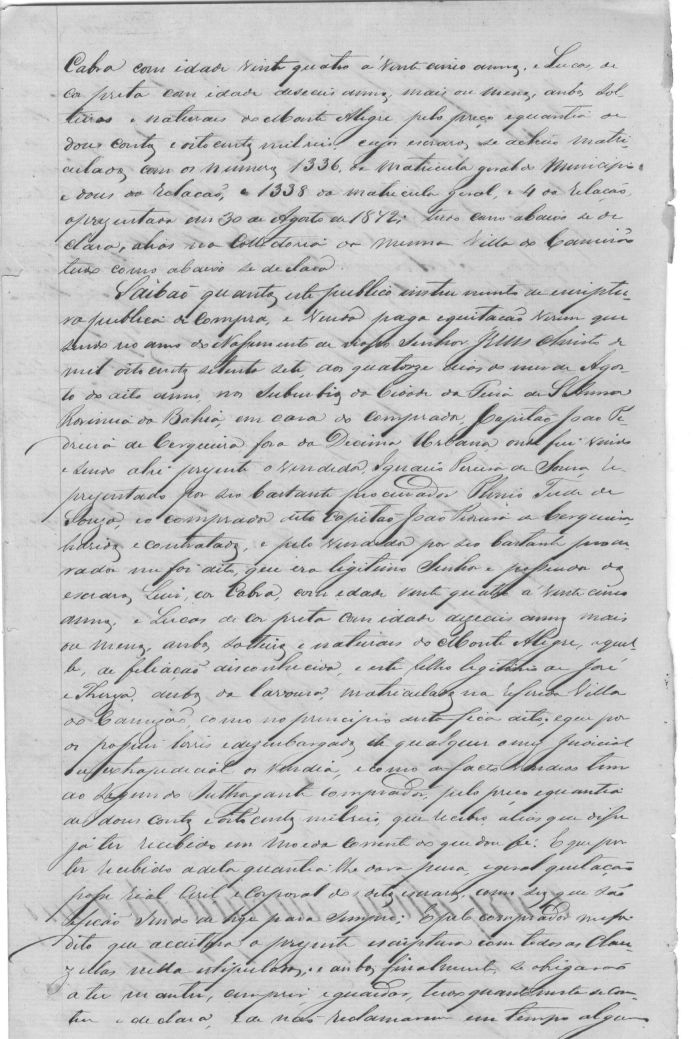 Cabra com idade vinte quatro á vinte cinco annos, e Lucas de
cor preta com idade deseseis annos, mais ou menos, ambos sol
teiros e naturais do Monte Alegre, pelo preço e quantia de
dous contos e oito centos mil reis, cujos escravos se achão matri
culados com os numeros 1336, da matricula geral do Municipio
e dous da relação, e 1338 da matricula geral, e 4 da relação,
aprezentada em 30 de Agosto de 1872; tudo como abaixo se de
clara, alias na Collectoria da mesma Villa do Camizão
tudo como abaixo se declara.
Saibão quantos este publico instrumento de escriptu
ra publica de compra, e venda paga e quitação virem que
sendo no anno do Nascimento de nosso Senhor Jesus Christo de
mil oito centos setenta sete, aos quatorze dias do mez de Agos
to do dito anno, nos Suburbios da Cidade da Feira de S. Anna
Provincia da Bahia, em casa do comprador Capitão João Pe
dreira de Cerqueira fora da Decima Urbana, onde fui vindo
e sendo ahi prezente o vendedor Ignacio Pereira de Souza re
prezentado por seo bastante procurador Plinio Tude de
Souza, e o comprador dito Capitão João Pedreira de Cerqueira
havidos e contratados, e pelo vendedor por seo bastante procu
rador me foi dito, que era legitimo Senhor e possuidor dos
escravos Luis, cor Cabra, com idade vinte quatro a vinte cinco
annos, e Lucas de cor preta com idade dezeseis annos mais
ou menos, ambos solteiros e naturais do Monte Alegre, aquel
le, de filiação disconhecida, e este filho legitimo de José
e Thereza, ambos da lavoura, matriculados na referida Villa
do Camizão, como no principio desta fica dito, e que por
os possuir livres e dezembargados de qualquer onus judicial
ou extrajudicial os vendia, e como de facto vendeo tem
ao segundo outhorgante comprador, pelo preço e quantia
de dous contos e oito centos mil reis, que recebeo alias que disse
já ter recebido em moeda corrente do que dou fé: E que por
ter recebido a dita quantia lhe dava pura, e geral quitação
posse real civil e corporal dos ditos escravos, como seos que são
e ficão sendo de hoje para sempre; E pelo comprador me foi
dito que acceitava a prezente escriptura com todas as clau
zulas nella estipuladas, e ambos finalmente, se obrigarão
a ter manter, cumprir, e guardar, tudo quanto nesta se con
tem e declara, e de não reclamarem em tempo algum